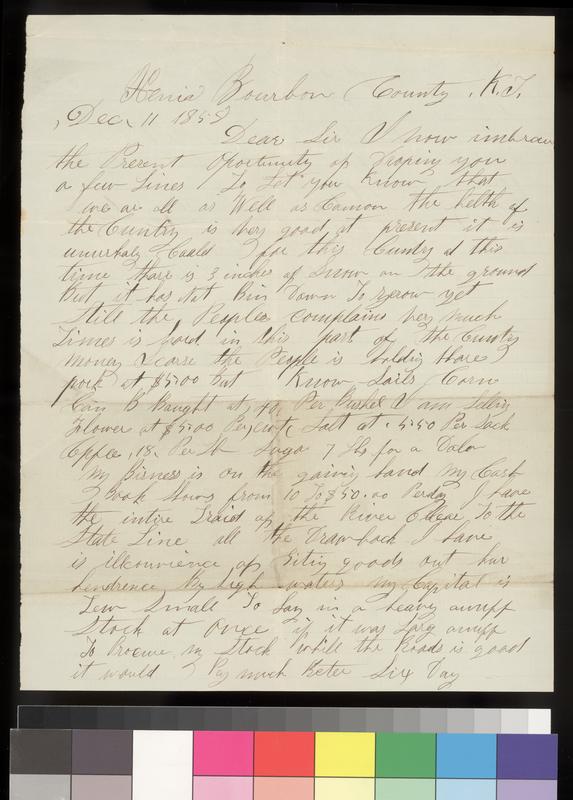 Xenia Bourbon County, K.T.
Dec 11 1858
Dear Sir I now imbrace
the Present Oportunity of Droping you
a few Lines To Let you Know that
we are all as Well as Comon the helth of
the Cuntry is very good at present it is
unuerhaly Could for this Cuntry at this
time thare is 3 inches of Snow on the ground
But it has Not Bin Down To zerow yet
Still the People complains very much
Times is hard in this part of the Cuntry
Money Scarse the People is holding thare
pork at $5.00 but Know Sails Corn
Can B Baught at 40 Per Bushel I am Selling
Flower at $5.00 Per cwt Salt at 5.50 Per Sack
Coffee, 18, Per Lb Sugar 7 Lbs for a Dolar
My Bisness is on the gaining hand My Cash
Book Shows from 10 To $50.00 Per day I have
the intire Traid of the River Clear To the
State Line all the Draw back I have
is illconvience of Giting goods out hur
hendrence By high waters My Capital is
Tew Small To Lay in a heavy anuff
Stock at Once if it was Larg anuff
To Procure my Stock while the Roads is good
it would Pay much Beter Sir I ay